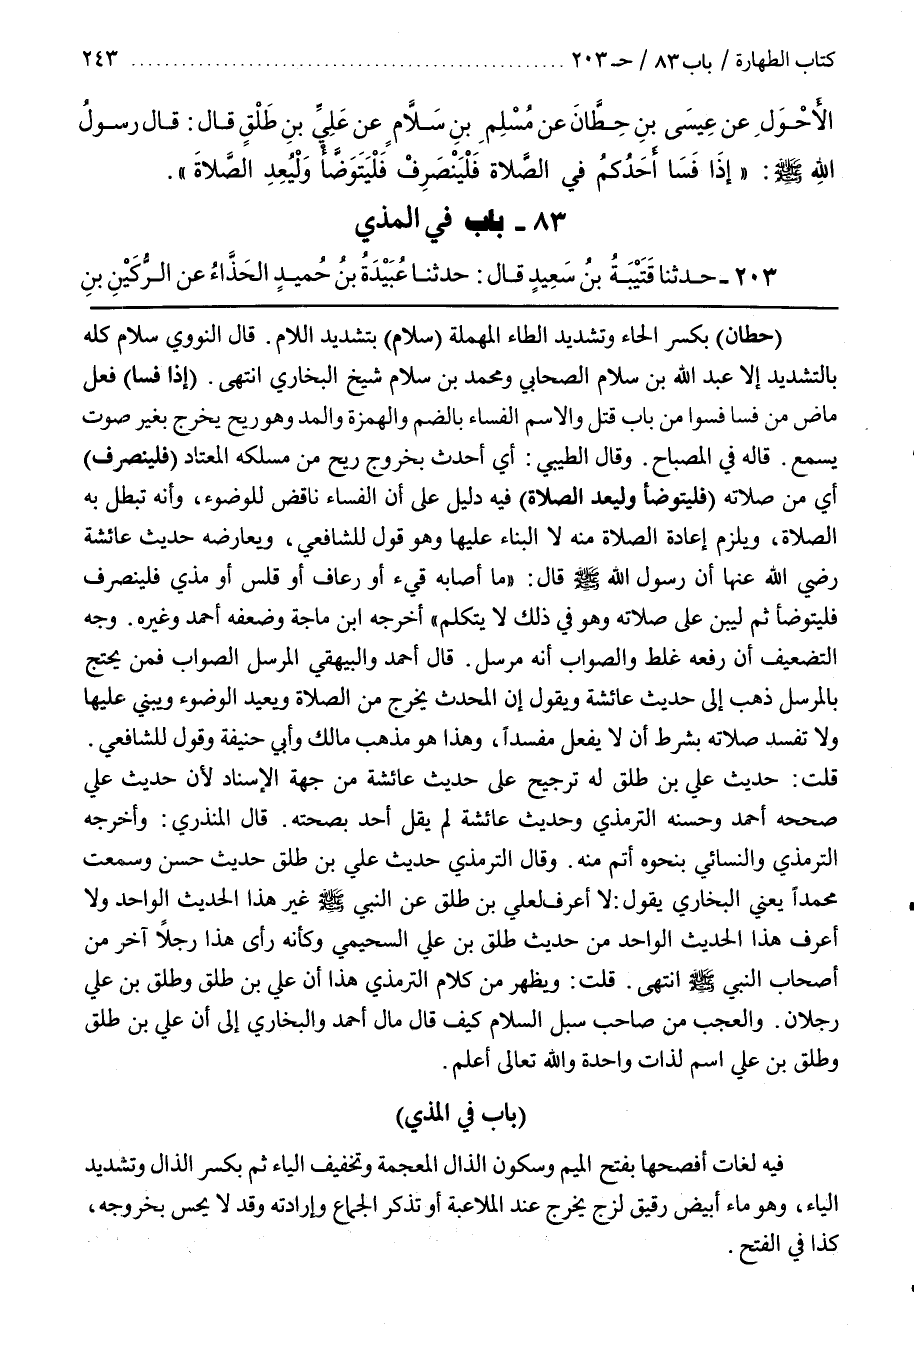 كتاب الطهارة / باب ٨٣ / حـ ٢٠٣ ................................................. ٢٤٣
الأَحْوَلِ عن عِيسَى بنِ حِطَّانَ عن مُسْلِمِ بنِ سَلَّامٍ عن عَلِيِّ بنِ طَلْقٍ قال: قال رسولُ
اللهِ ﷺ: «إِذَا فَسَا أَحَدُكُمْ في الصَّلاة فَلْيَنْصَرِفْ فَلْيَتَوَضَّأْ وَلْيُعِدِ الصَّلاةَ».
٨٣ ـ باب في المذي
٢٠٣ ـ حدثنا قُتَيْبَةُ بنُ سَعِيدٍ قال: حدثنا عُبَيْدَةُ بنُ حُميدٍ الحَذَّاءُ عن الرُّكَيْنِ بنِ
(حطان) بكسر الحاء وتشديد الطاء المهملة (سلام) بتشديد اللام. قال النووي سلام كله
بالتشديد إلا عبد الله بن سلام الصحابي ومحمد بن سلام شيخ البخاري انتهى. (إذا فسا) فعل
ماض من فسا فسوا من باب قتل والاسم الفساء بالضم والهمزة والمد وهو ريح يخرج بغير صوت
يسمع. قاله في المصباح. وقال الطيبي: أي أحدث بخروج ريح من مسلكه المعتاد (فلينصرف)
أي من صلاته (فليتوضأ وليعد الصلاة) فيه دليل على أن الفساء ناقض للوضوء، وأنه تبطل به
الصلاة، ويلزم إعادة الصلاة منه لا البناء عليها وهو قول للشافعي، ويعارضه حديث عائشة
رضي الله عنها أن رسول الله ﷺ قال: «ما أصابه قيء أو رعاف أو قلس أو مذي فلينصرف
فليتوضأ ثم ليبن على صلاته وهو في ذلك لا يتكلم» أخرجه ابن ماجة وضعفه أحمد وغيره. وجه
التضعيف أن رفعه غلط والصواب أنه مرسل. قال أحمد والبيهقي المرسل الصواب فمن يحتج
بالمرسل ذهب إلى حديث عائشة ويقول إن المحدث يخرج من الصلاة ويعيد الوضوء ويبني عليها
ولا تفسد صلاته بشرط أن لا يفعل مفسداً، وهذا هو مذهب مالك وأبي حنيفة وقول للشافعي.
قلت: حديث علي بن طلق له ترجيح على حديث عائشة من جهة الإسناد لأن حديث علي
صححه أحمد وحسنه الترمذي وحديث عائشة لم يقل أحد بصحته. قال المنذري: وأخرجه
الترمذي والنسائي بنحوه أتم منه. وقال الترمذي حديث علي بن طلق حديث حسن وسمعت
محمداً يعني البخاري يقول: لا أعرف لعلي بن طلق عن النبي ﷺ غير هذا الحديث الواحد ولا
أعرف هذا الحديث الواحد من حديث طلق بن علي السحيمي وكأنه رأى هذا رجلاً آخر من
أصحاب النبي ﷺ انتهى. قلت: ويظهر من كلام الترمذي هذا أن علي بن طلق وطلق بن علي
رجلان. والعجب من صاحب سبل السلام كيف قال مال أحمد والبخاري إلى أن علي بن طلق
وطلق بن علي اسم لذات واحدة والله تعالى أعلم.
(باب في المذي)
فيه لغات أفصحها بفتح الميم وسكون الذال المعجمة وتخفيف الياء ثم بكسر الذال وتشديد
الياء، وهو ماء أبيض رقيق لزج يخرج عند الملاعبة أو تذكر الجماع وإرادته وقد لا يحس بخروجه،
كذا في الفتح.